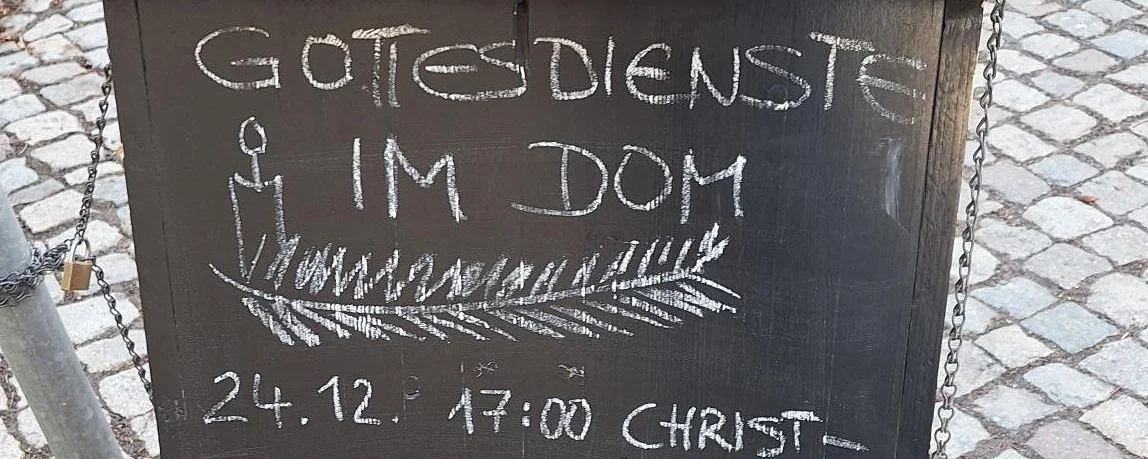 GOTTESDIENSTE
IM DOM
24.12. 17:00 CHRIST-